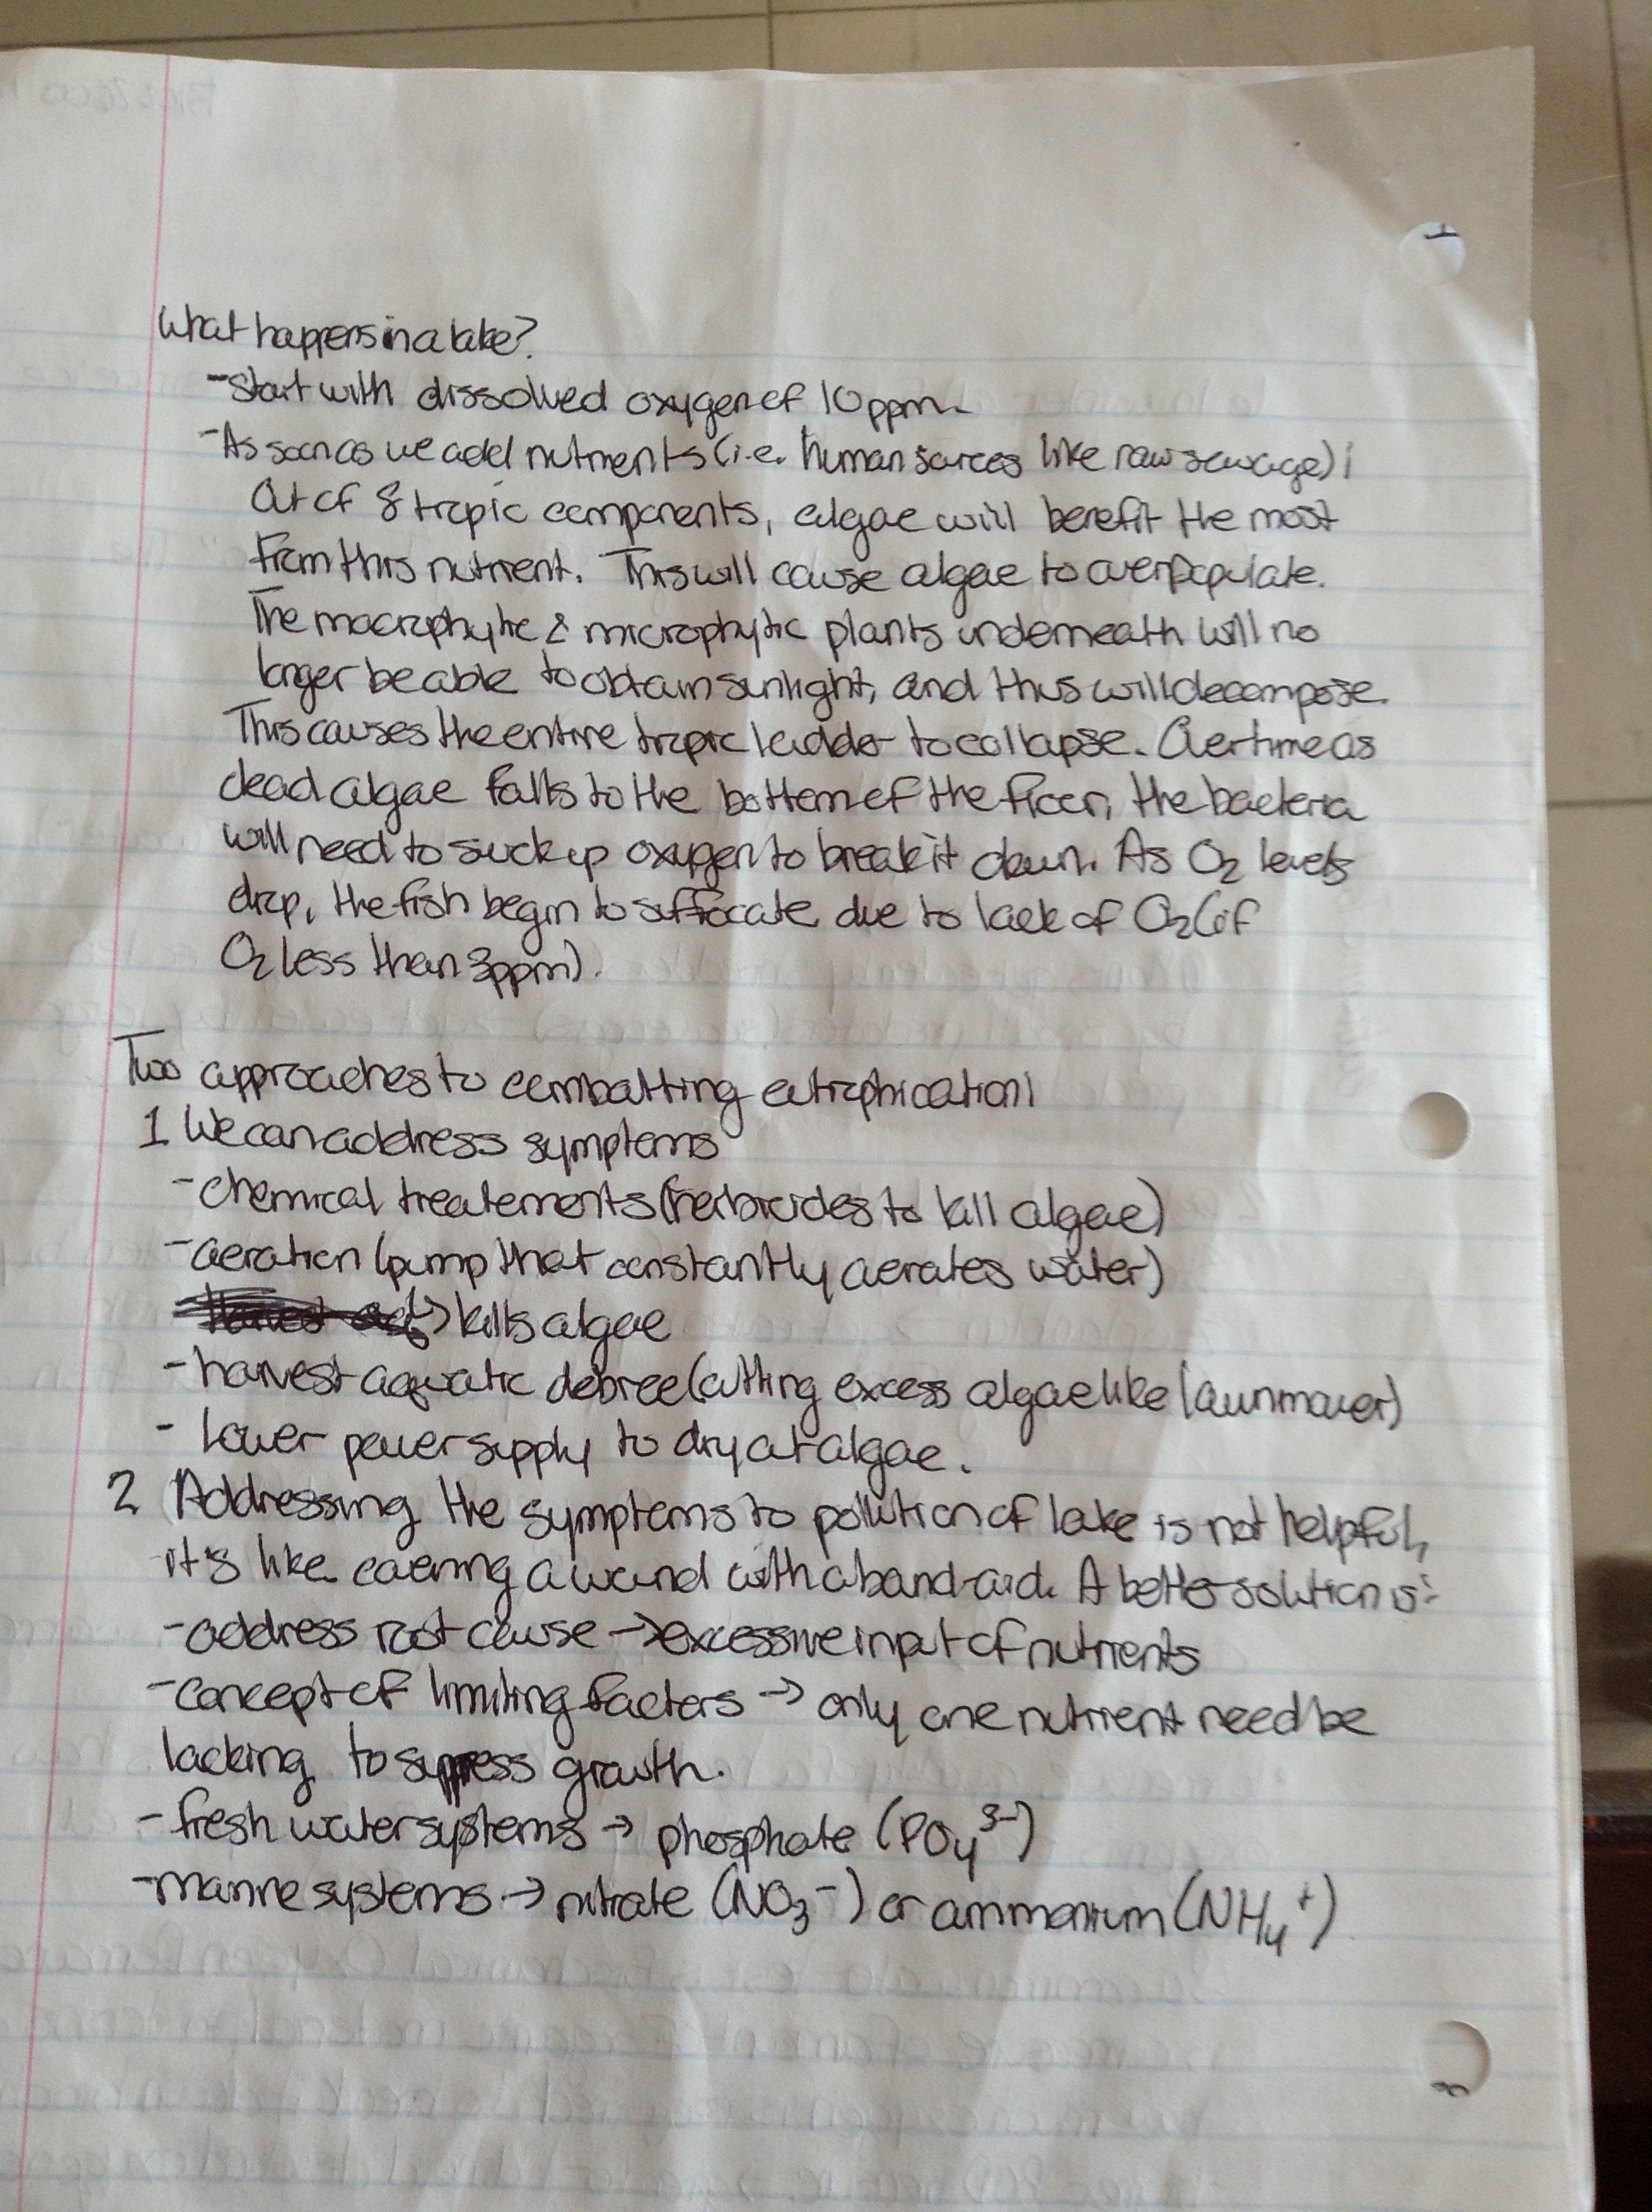 What happens in a lake?
- Start with dissolved oxygen of 10ppm.
- As soon as we add nutrients (i.e. human sorces like raw sewage);
Out of 8 tropic components, algae will benefit the most
from this nutrient. This will cause algae to overpopulate.
The macrophytic & microphytic plants underneath will no
longer be able to obtain sunlight, and thus will decompose.
This causes the entire tropic ladder to collapse. Over time as
dead algae falls to the bottom of the floor, the bacteria
will need to suck up oxygen to break it down. As O₂ levels
drop, the fish begin to suffocate due to lack of O₂ (if
O₂ less than 3ppm).
Two approaches to combatting eutrophication:
1 We can address symptoms
- chemical treatements (herbicides to kill algae)
- aeration (pump that constantly aerates water)
→ kills algae
- harvest aquatic debree (cutting excess algae like lawnmower)
- lower power supply to dry out algae.
2 Addressing the symptoms to pollution of lake is not helpful,
it's like covering a wound with a band-aid. A better solution is:
- address root cause → excessive input of nutrients
- concept of limiting factors → only one nutrient need be
lacking to suppress growth.
- fresh water systems → phosphate (PO₄³⁻)
- marine systems → nitrate (NO₃⁻) or ammonium (NH₄⁺)